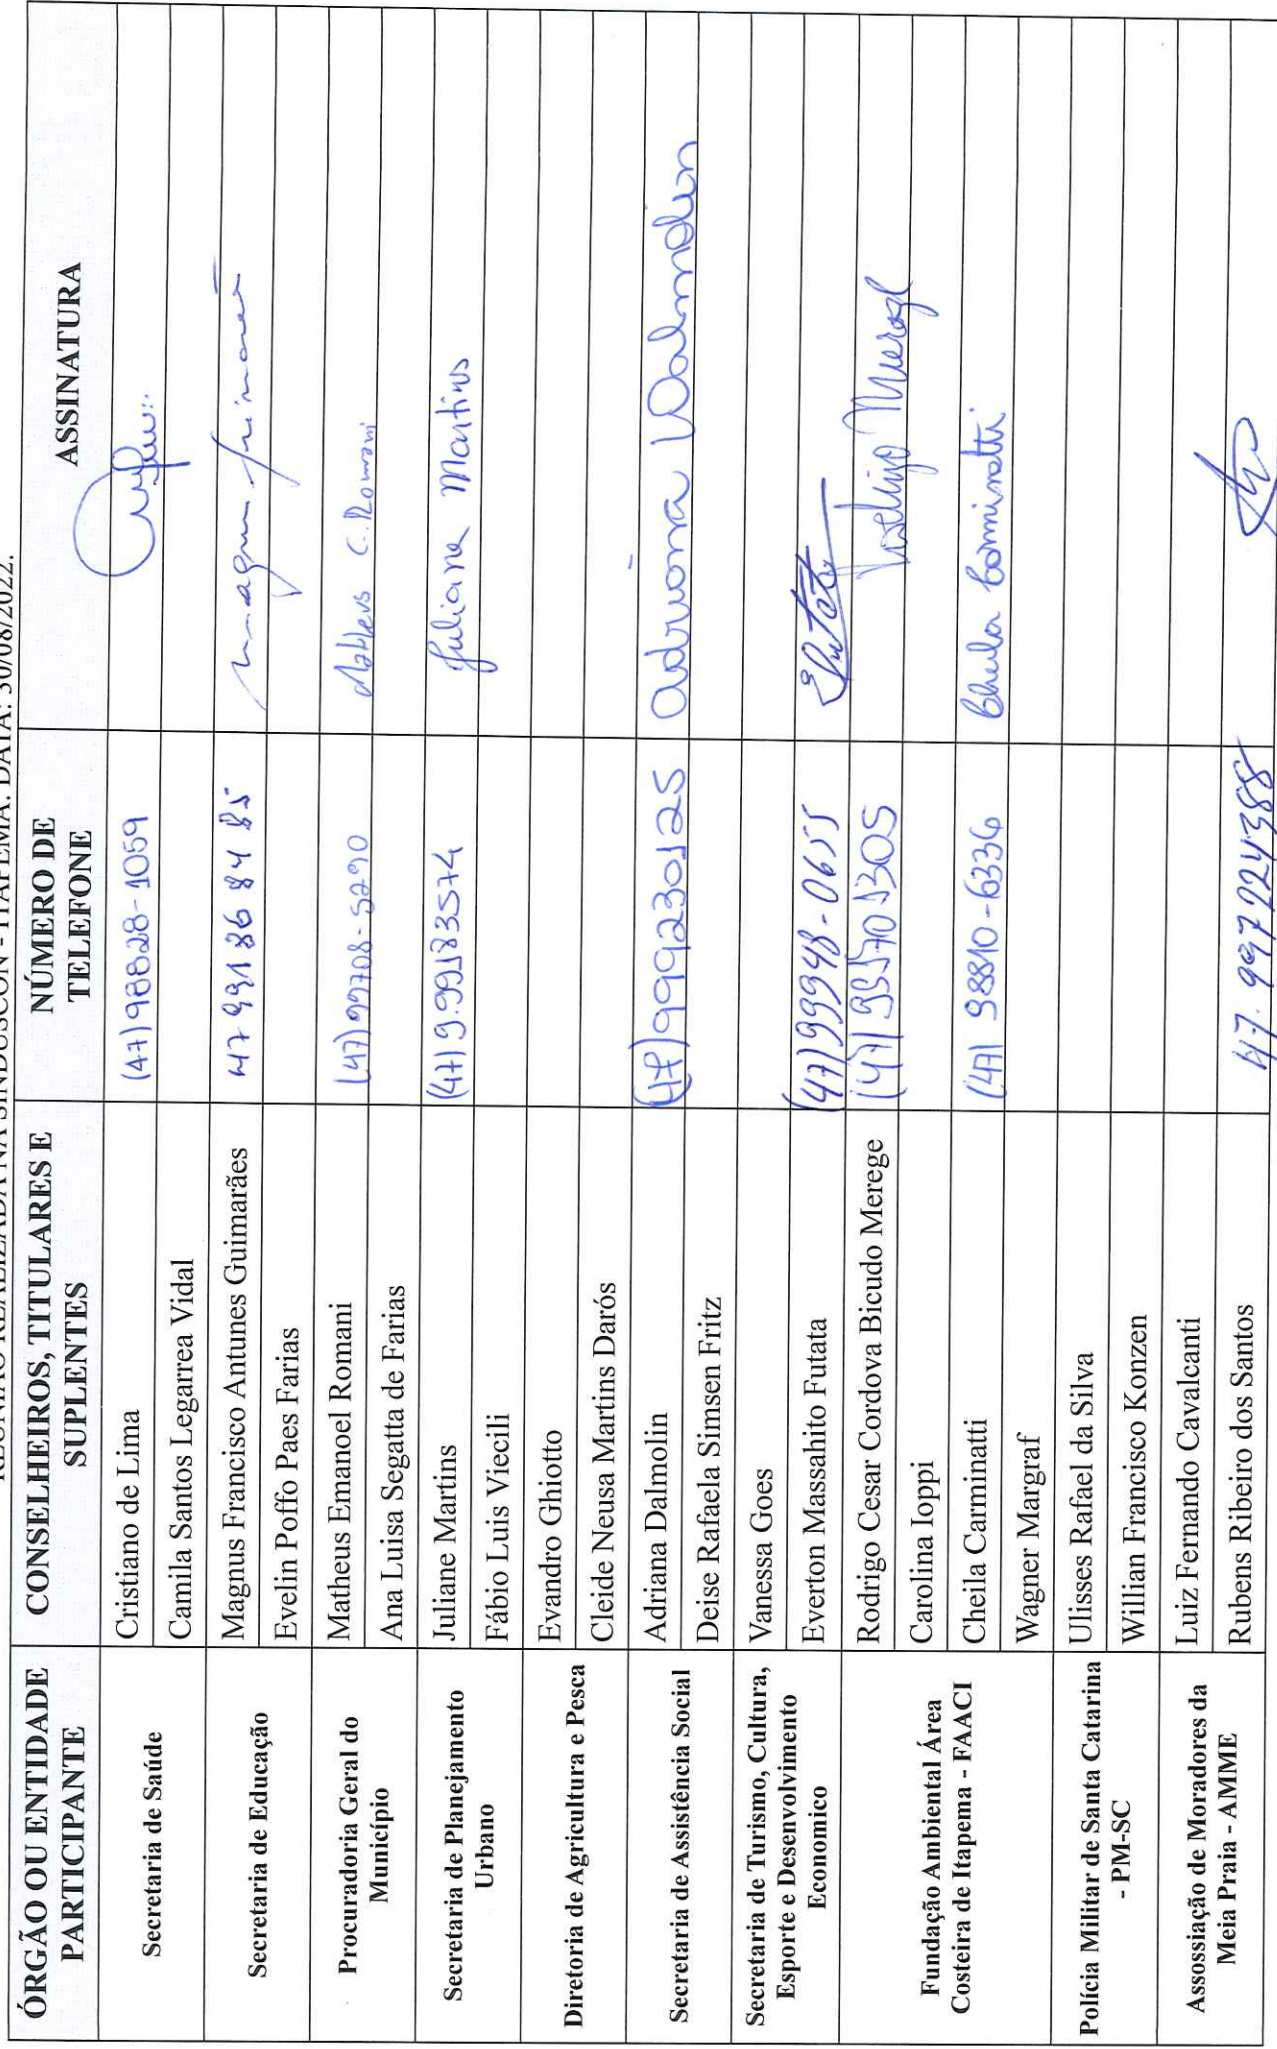 REUNIÃO REALIZADA NA SINDUSCON - ITAPEMA. DATA: 30/08/2022.
ÓRGÃO OU ENTIDADE PARTICIPANTE
CONSELHEIROS, TITULARES E SUPLENTES
NÚMERO DE TELEFONE
ASSINATURA
Secretaria de Saúde
Cristiano de Lima
(47) 98828-1059
Camila Santos Legarrea Vidal
Secretaria de Educação
Magnus Francisco Antunes Guimarães
47 99186 84 85
Evelin Poffo Paes Farias
Procuradoria Geral do Município
Matheus Emanoel Romani
(47) 99708-5290
Matheus C. Romani
Ana Luisa Segatta de Farias
Secretaria de Planejamento Urbano
Juliane Martins
(47) 9.99183574
Juliane Martins
Fábio Luis Viecili
Diretoria de Agricultura e Pesca
Evandro Ghiotto
Cleide Neusa Martins Darós
Secretaria de Assistência Social
Adriana Dalmolin
(47) 999230125
Adriana Dalmolin
Deise Rafaela Simsen Fritz
Secretaria de Turismo, Cultura, Esporte e Desenvolvimento Economico
Vanessa Goes
Everton Massahito Futata
(47) 99948-0655
Fundação Ambiental Área Costeira de Itapema - FAACI
Rodrigo Cesar Cordova Bicudo Merege
Carolina Ioppi
Cheila Carminatti
(47) 98810-6336
Cheila Carminatti
Wagner Margraf
Polícia Militar de Santa Catarina - PM-SC
Ulisses Rafael da Silva
Willian Francisco Konzen
Assossiação de Moradores da Meia Praia - AMME
Luiz Fernando Cavalcanti
Rubens Ribeiro dos Santos
47. 997224388